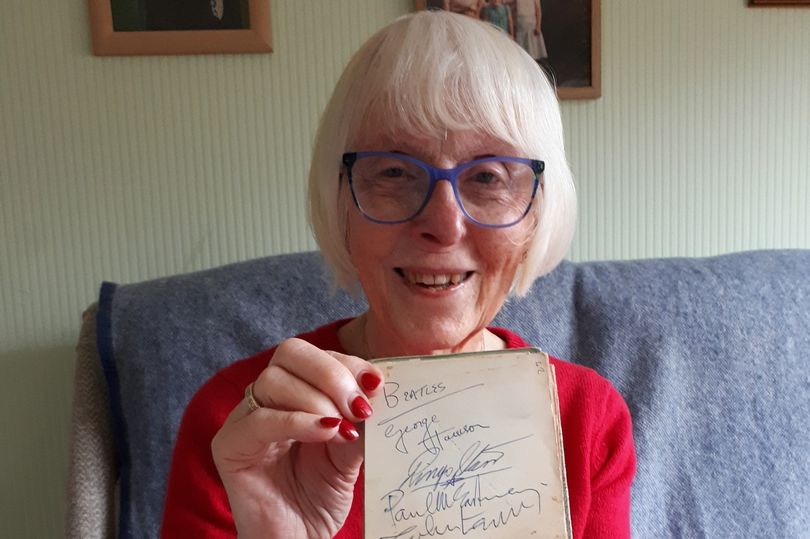 BEATLES
George
Harrison
Ringo Starr
Paul McCartney
John Lennon